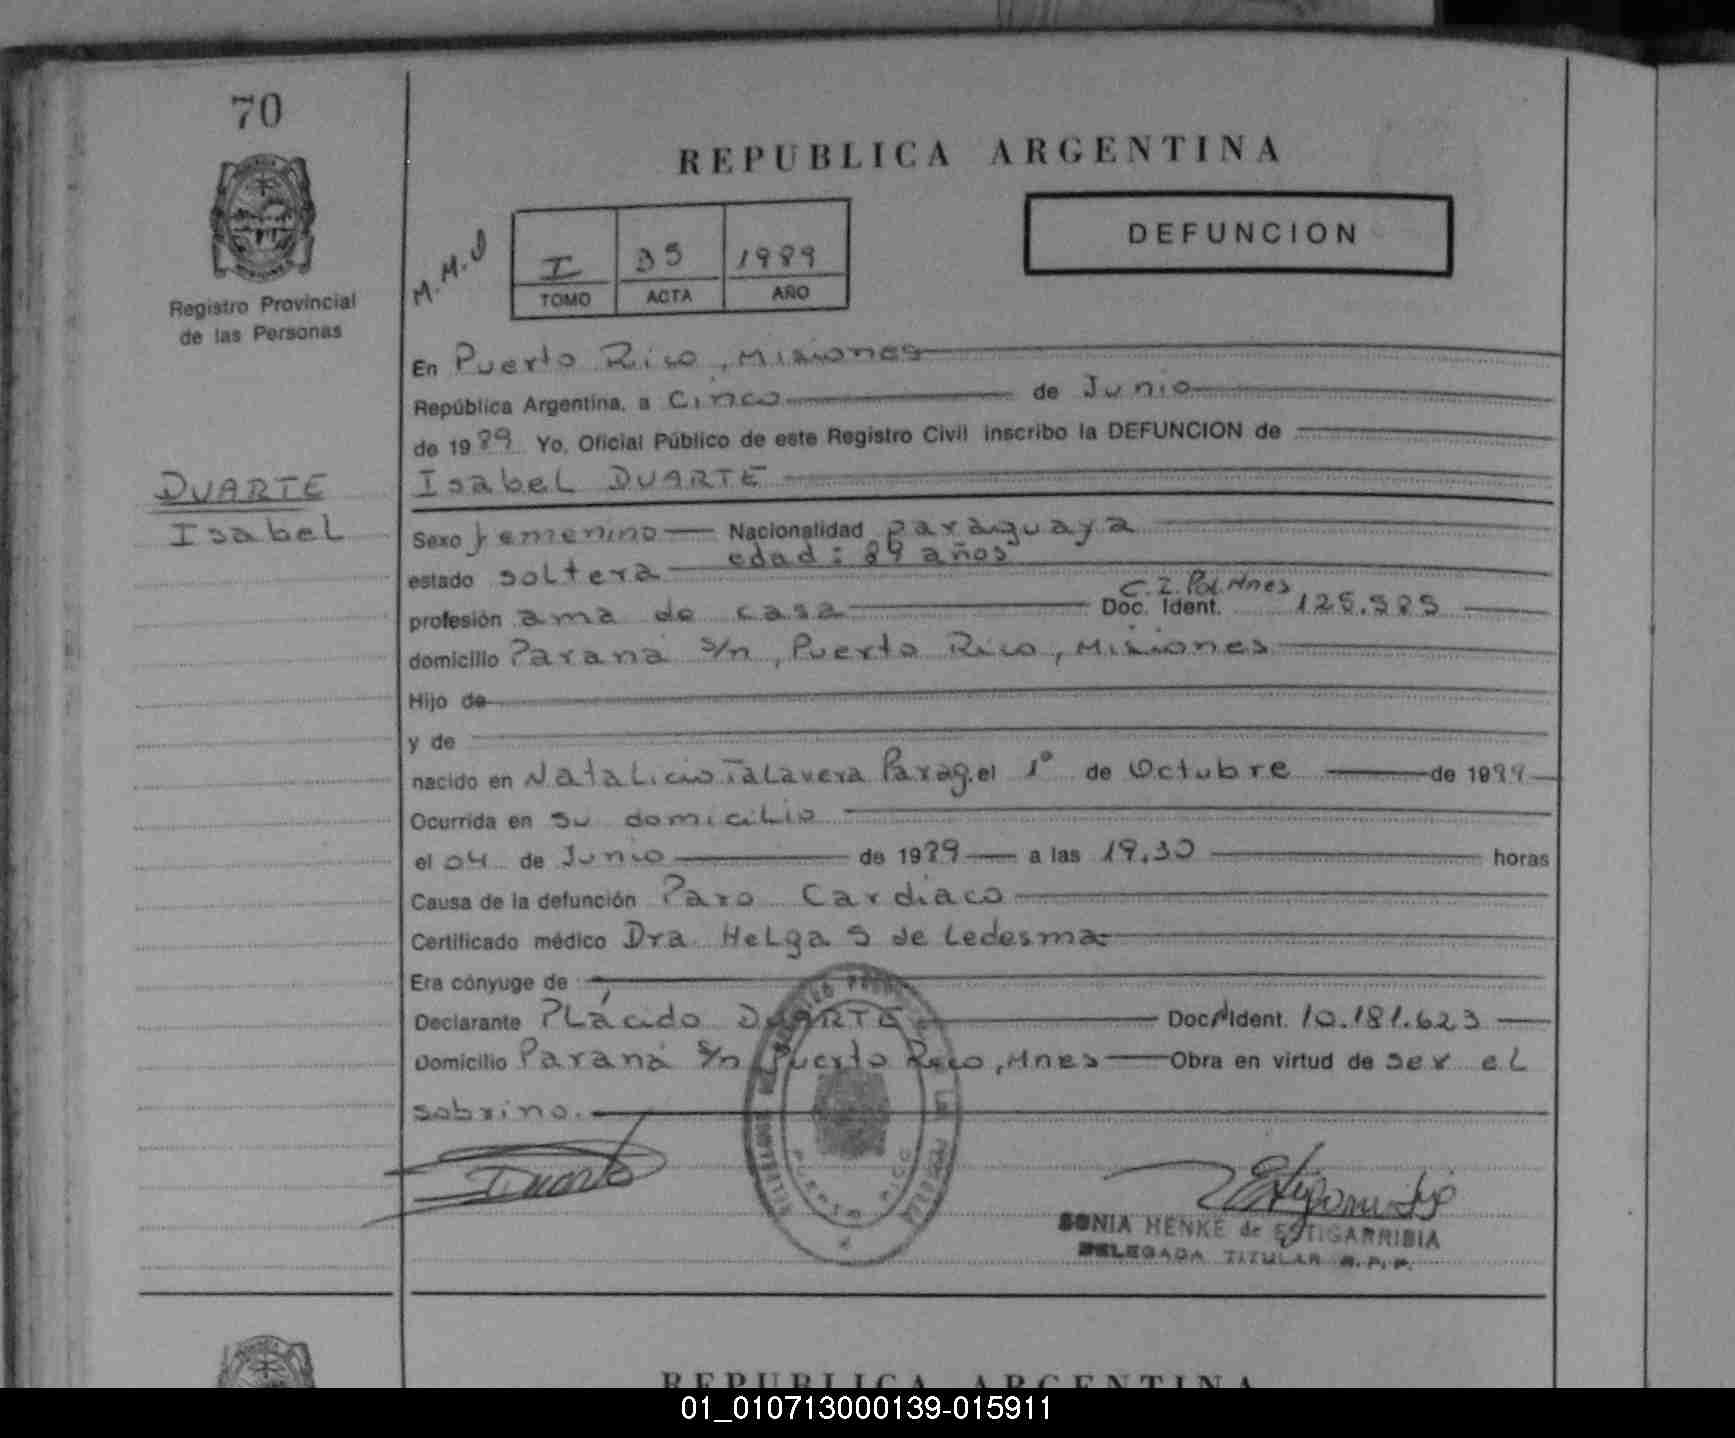 70
REPUBLICA ARGENTINA
DEFUNCION
M.M.J
I 35 1989
TOMO ACTA AÑO
Registro Provincial
de las Personas
En Puerto Rico, Misiones
República Argentina, a Cinco de Junio
de 1989 Yo, Oficial Público de este Registro Civil inscribo la DEFUNCION de
DUARTE
Isabel
Isabel DUARTE
Sexo femenino Nacionalidad paraguaya
edad: 89 años
estado soltera
C.I. Pol. Mnes
profesión ama de casa Doc. Ident. 125.585
domicilio Paraná s/n, Puerto Rico, Misiones
Hijo de
y de
nacido en Natalicio Talavera Parag. el 1° de Octubre de 1899
Ocurrida en su domicilio
el 04 de Junio de 1989 a las 19.30 horas
Causa de la defunción Paro Cardiaco
Certificado médico Dra Helga S de Ledesma
Era cónyuge de
Declarante PLácido DUARTE Doc. Ident. 10.181.623
Domicilio Paraná s/n Puerto Rico, Mnes Obra en virtud de ser el
sobrino.
Duarte
PUERTO RICO
SONIA HENKE de ESTIGARRIBIA
DELEGADA TITULAR R.P.P.
REPUBLICA ARGENTINA
01_010713000139-015911